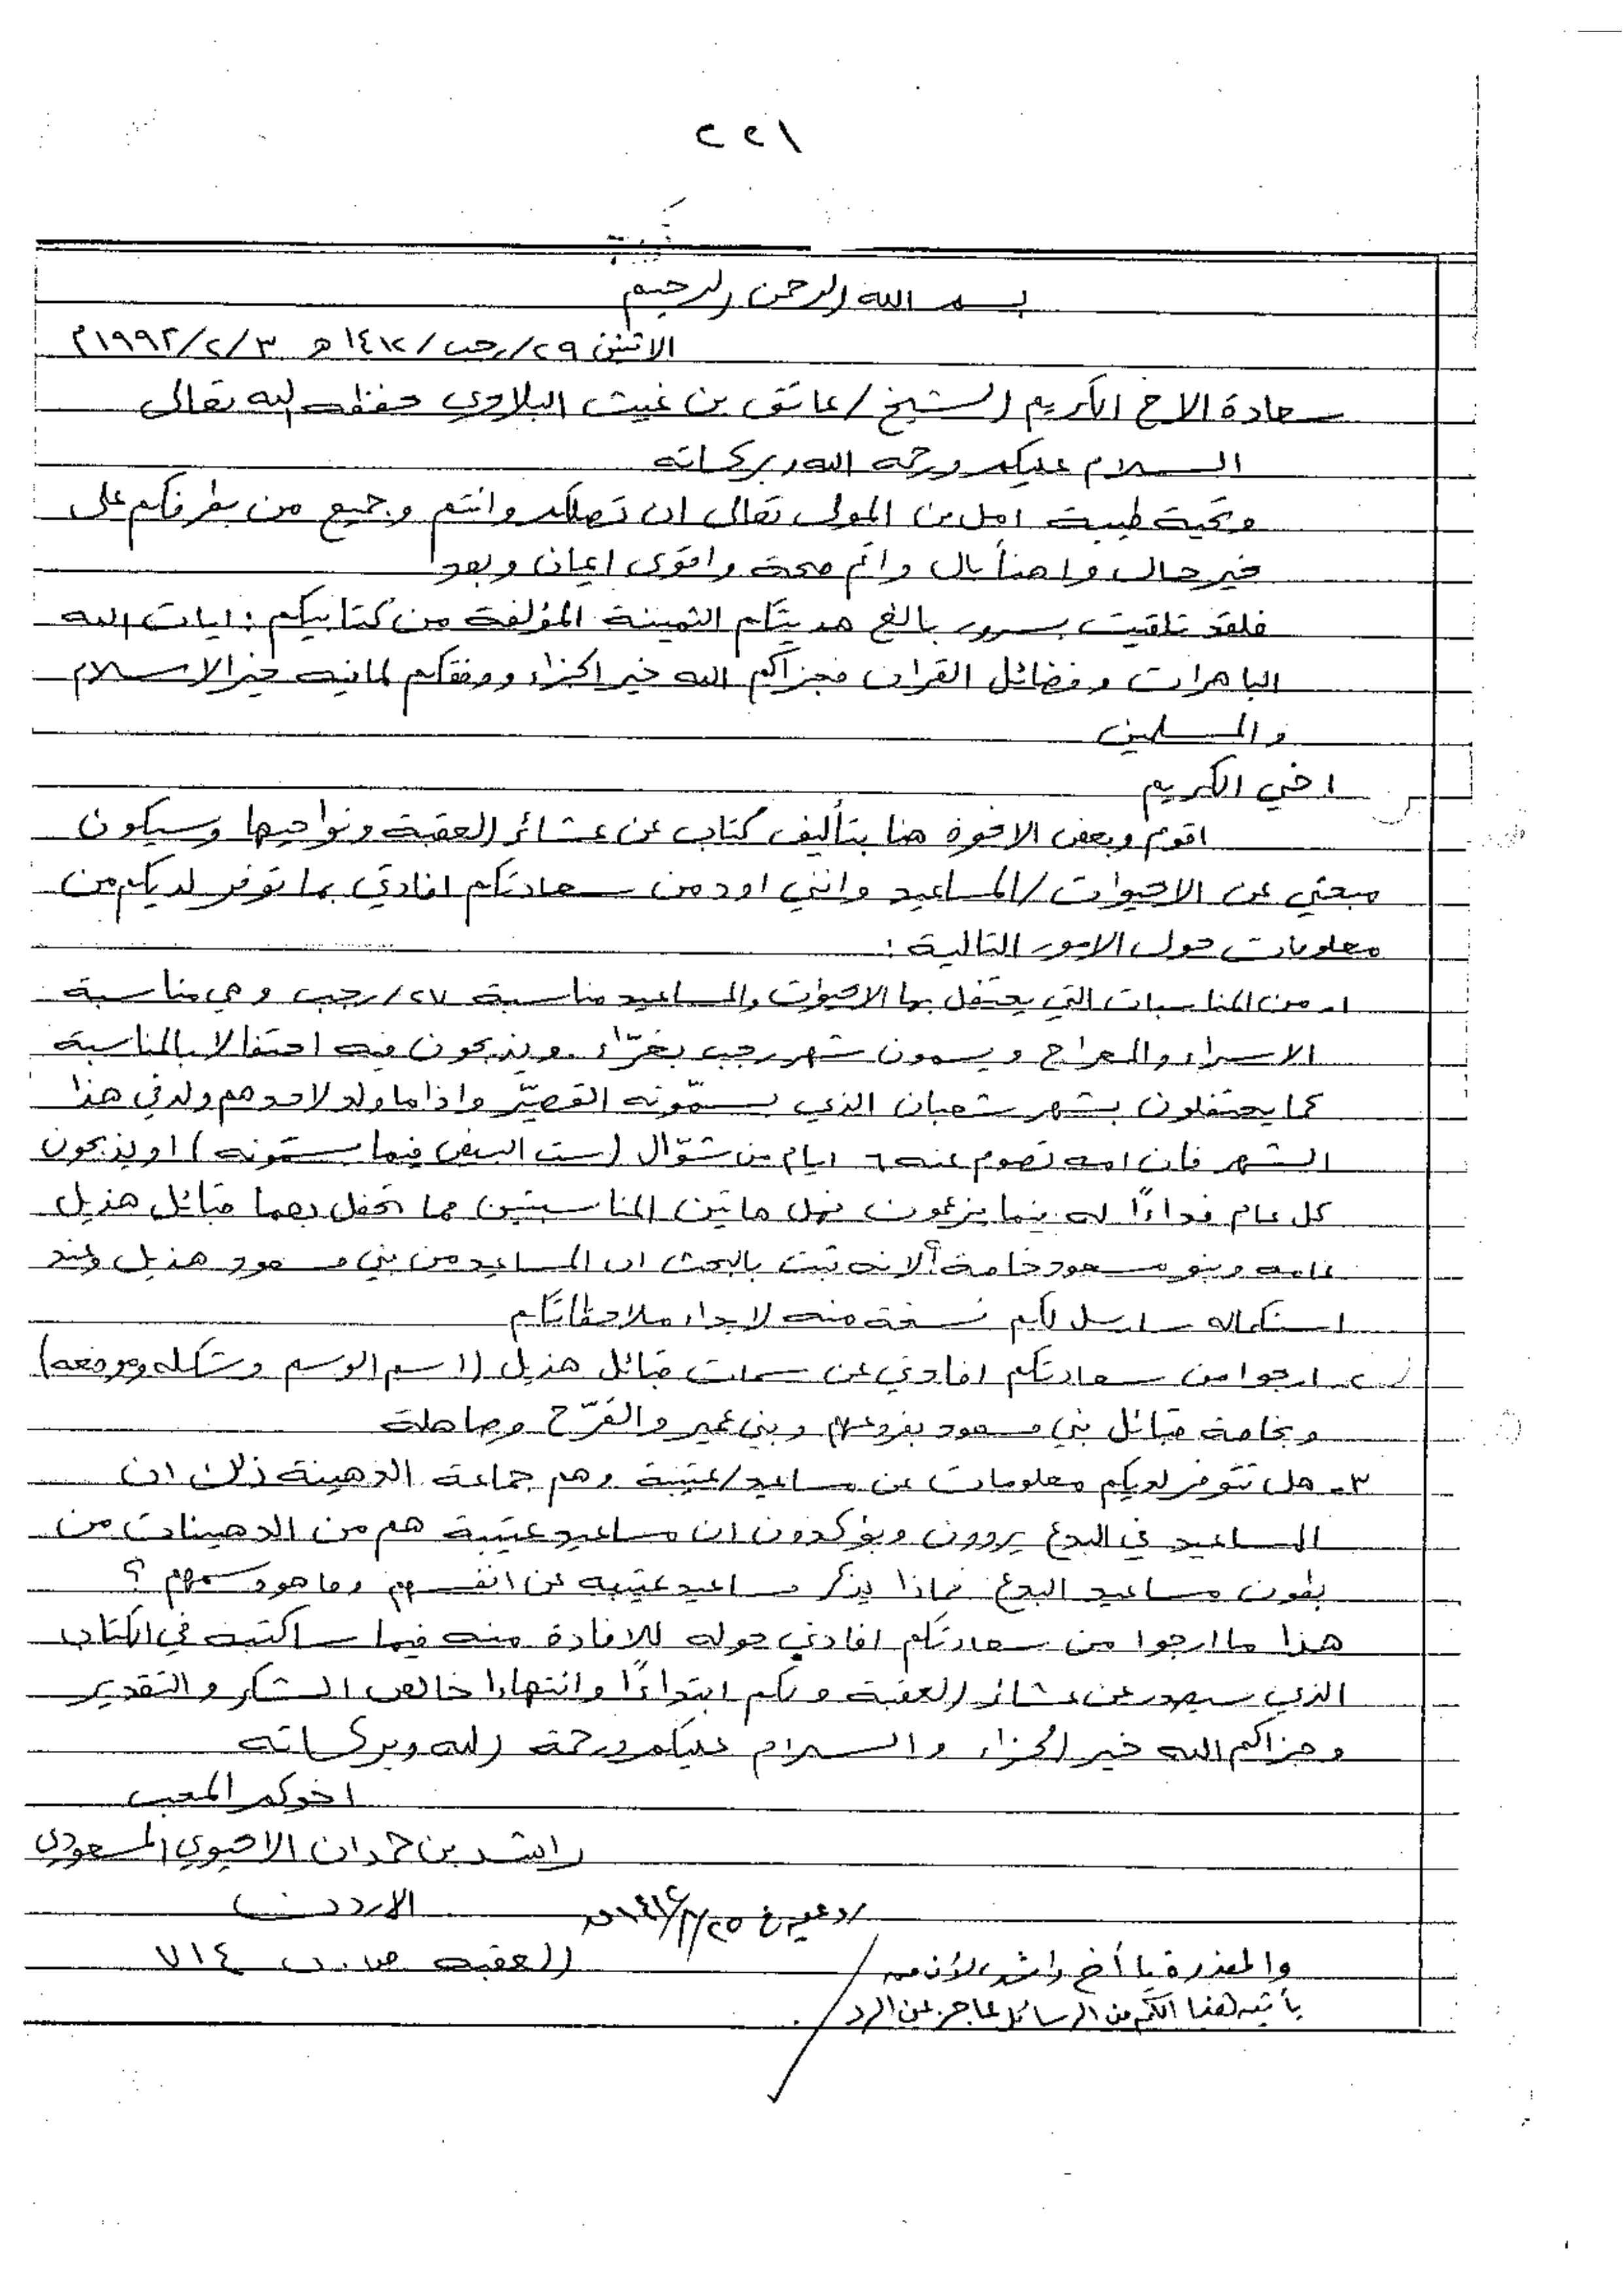 ٢٢١
بسم الله الرحمن الرحيم
الاثنين ٢٩/رجب/١٤١٢ هـ ٣/٢/١٩٩٢م
سعادة الاخ الكريم الشيخ/عاتق بن غيث البلادي حفظه الله تعالى
السلام عليكم ورحمة الله وبركاته
وتحية طيبة امل من المولى تعالى ان تصلكم وانتم وجميع من بطرفكم على
خير حال واهنأ بال واتم صحة واقوى ايمان وبعد
فلقد تلقيت بسرور بالغ هديتكم الثمينة المؤلفة من كتابيكم : ايات الله
الباهرات وفضائل القران فجزاكم الله خير الجزاء ووفقكم لمافيه خير الاسلام
والمسلمين
اخي الكريم
اقوم وبعض الاخوة هنا بتأليف كتاب عن عشائر العقبة ونواحيها وسيكون
مبحثي عن الاحيوات/المساعيد وانني اود من سعادتكم افادتي بما توفر لديكم من
معلومات حول الامور التالية :
١ـ من المناسبات التي يحتفل بها الاحيوات والمساعيد مناسبة ٢٧/رجب وهي مناسبة
الاسراء والمعراج ويسمون شهر رجب بغرّاء ويذبحون فيه احتفالا بالمناسبة
كما يحتفلون بشهر شعبان الذي يسمّونه القصيّر واذا ما ولد لاحدهم ولد في هذا
الشهر فان امه تصوم عنه ٦ ايام من شوّال (ست البيض فيما يسمّونه) او يذبحون
كل عام فداءًا له فيما يزعمون فهل هاتين المناسبتين مما تحفل بهما قبائل هذيل
عامه وبنو مسعود خاصة؟ لانه ثبت بالبحث ان المساعيد من بني مسعود هذيل وعند
استكماله سارسل لكم نسخة منه لابداء ملاحظاتكم
٢ـ ارجوا من سعادتكم افادتي عن سمات قبائل هذيل (اسم الوسم وشكله وموضعه)
وبخاصة قبائل بني مسعود بفروعهم وبني عمير والقرّح وصاهلة
٣ـ هل تتوفر لديكم معلومات عن مساعيد/عتيبة وهم جماعة الدهينة ذلك ان
المساعيد في البدع يروون ويؤكدون ان مساعيد عتيبة هم من الدهينات من
بطون مساعيد البدع فماذا يذكر مساعيد عتيبه عن انفسهم وما هو وسمهم ؟
هذا ما ارجوا من سعادتكم افادتي حوله للافادة منه فيما ساكتبه في الكتاب
الذي سيصدر عن عشائر العقبة ولكم ابتداءًا وانتهاءا خالص الشكر والتقدير
وجزاكم الله خير الجزاء والسلام عليكم ورحمة الله وبركاته
اخوكم المحب
راشد بن حمدان الاحيوي المسعودي
الاردن
العقبه ص.ب ٧١٤
والمعذرة يا أخ راشد، لأن من
يأتيه هذا الكم من الرسائل عاجز عن الرد .